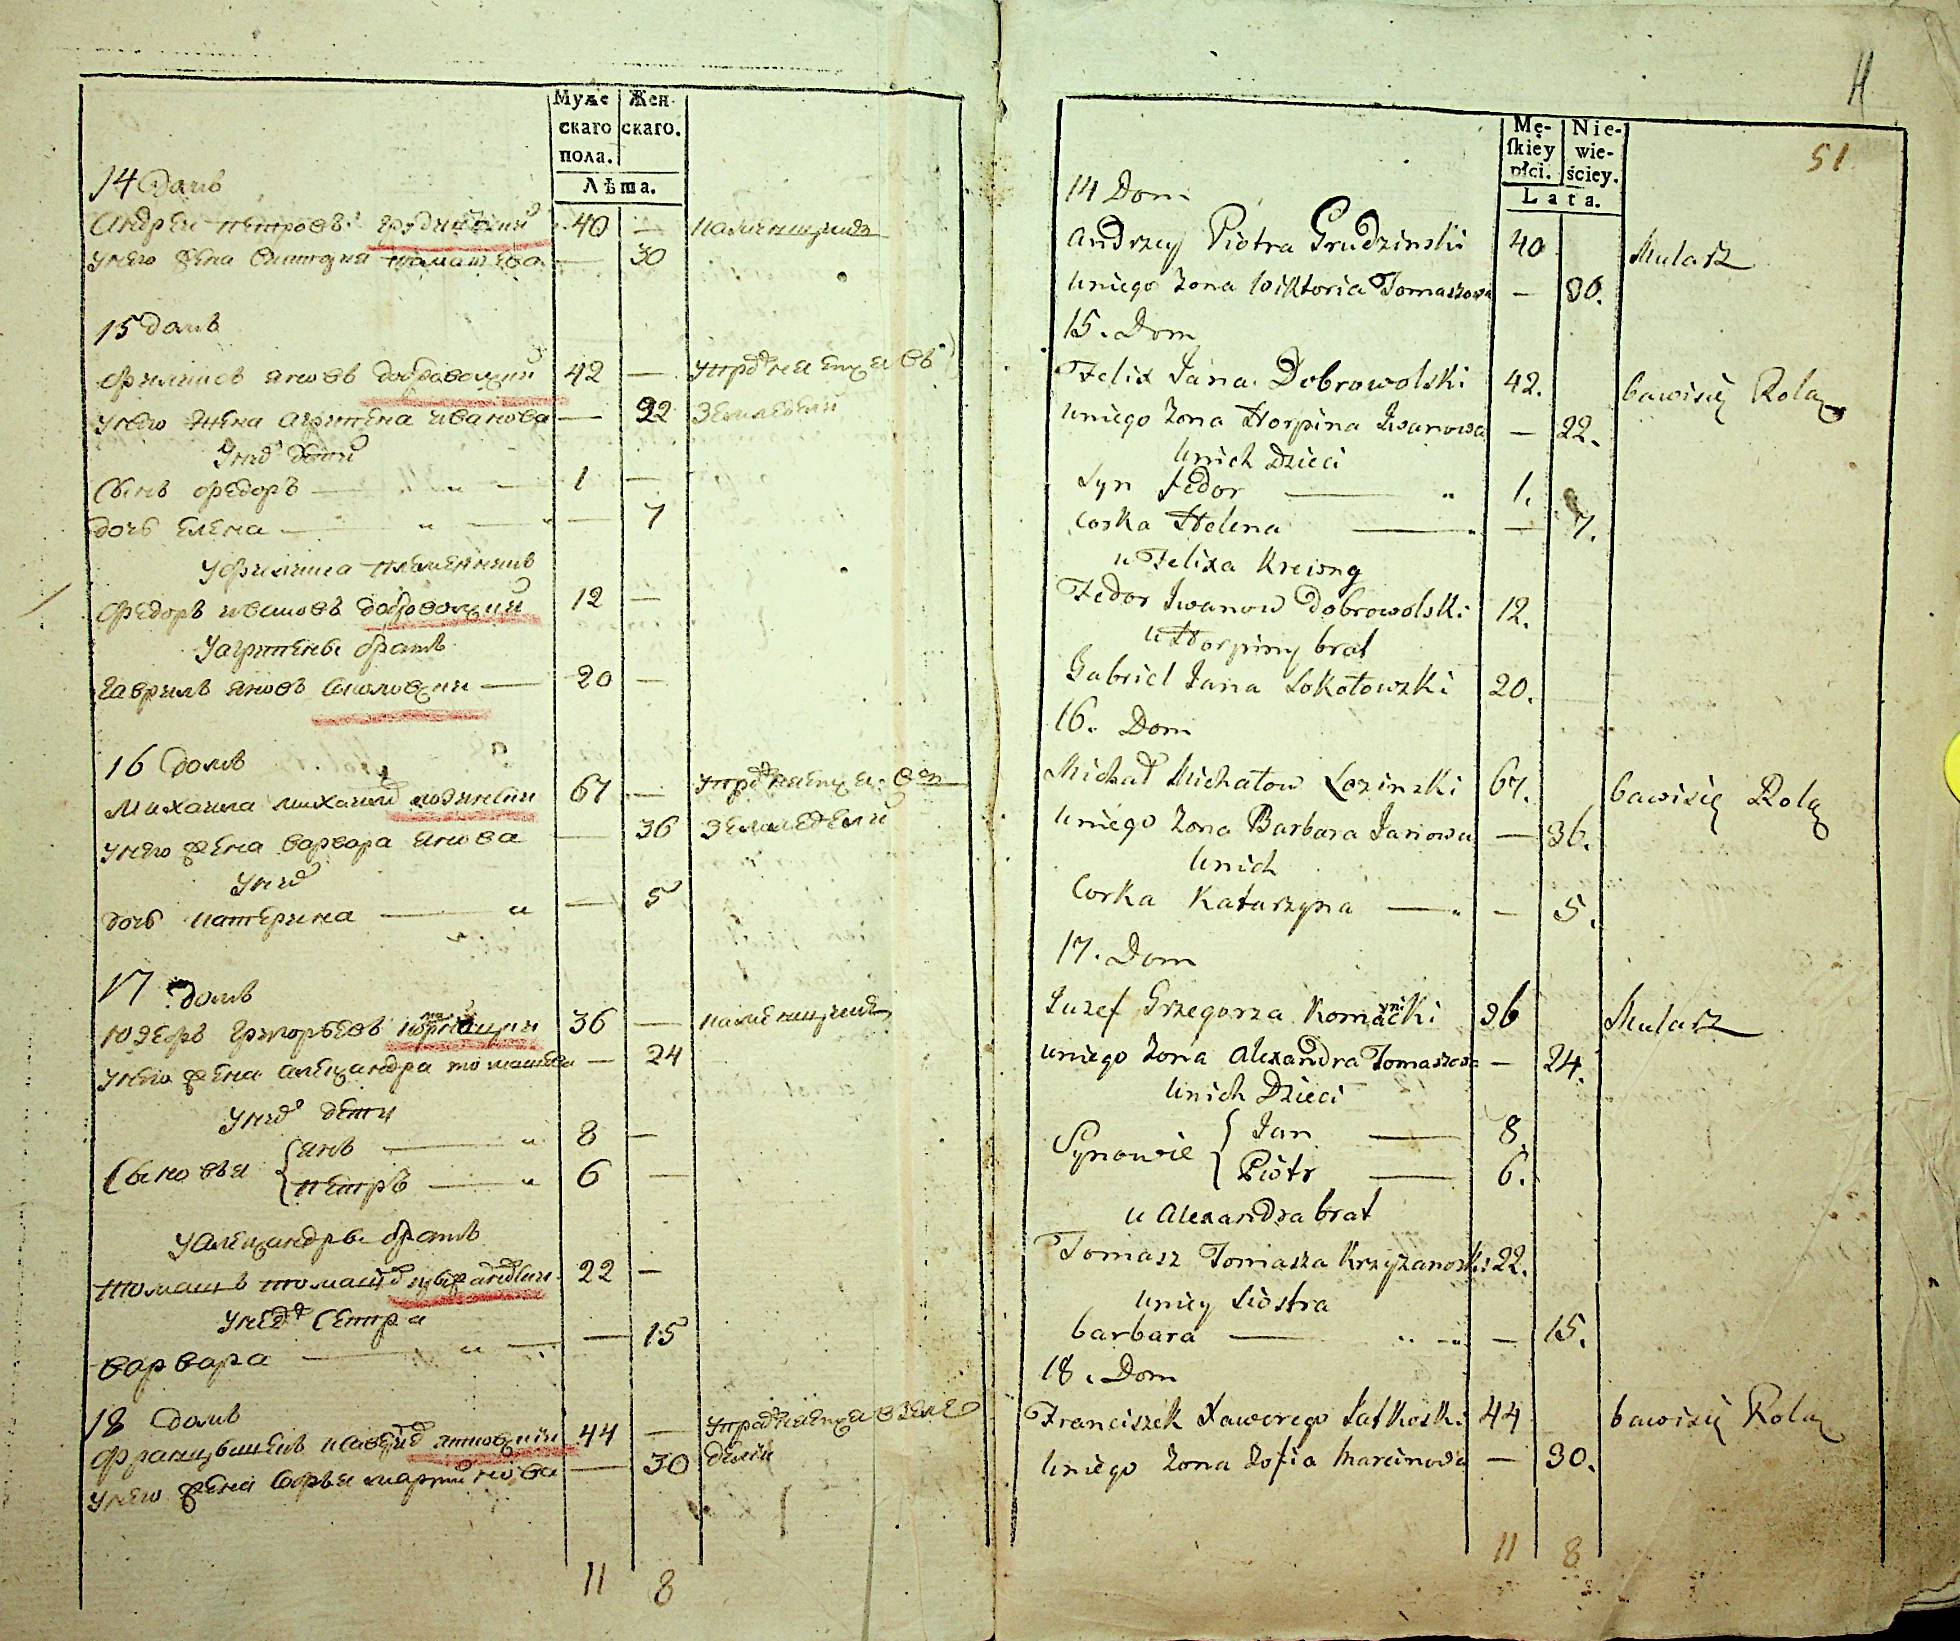 Муже Жен-
скаго скаго.
пола.
Лѣта.
14 Домъ
Андрей Петровъ Грудинский 40 — каменщикъ
у него жена Виктория Томашева — 30
15 домъ
Филиксъ Яновъ Добравольский 42 — упражняется въ
у него жена Агрипена Иванова — 22 земледелии
у них дети
Сынъ Федоръ — 1 —
дочь Елена — — 7
у Филикса племенникъ
Федоръ Ивановъ Добровольский 12 —
у Агрипены братъ
Гаврилъ Яновъ Соколовский — 20 —
16 домъ
Михаила Михайлов Лозинский 67 — упражняется в
у него жена Варвара Янова — 36 земледелии
у них
дочь Катерина — — 5
17 домъ
Юзефъ Григорьевъ 36 — каменщикъ
у него жена Александра Томашева — 24
у них дети
Сыновья { Янъ — 8 —
Петръ — 6 —
у Александры братъ
Томашъ Томашев 22 —
у нее сестра
Варвара — — 15
18 домъ
Францышекъ 44 — упражняется в земле
у него жена Софья Мартинова — 30 делии
11 8
11
51
Mę- Nie-
ſkiey wie-
płci. ściey.
Lata.
14 Dom
Andrzey Piotra Grudzinski 40 Mularz
u niego Zona Wiktoria Tomaszowa — 30.
15. Dom
Felix Jana Dobrowolski 42. bawi się Rolą
u niego Zona Horpina Iwanowa — 22.
u nich Dzieci
Syn Fedor — 1.
Corka Helena — — 7.
u Felixa Krewny
Fedor Iwanow Dobrowolski 12.
u Horpiny brat
Gabriel Jana Sokołowski 20.
16. Dom
Michał Michałow Lozinski 67. bawi się Rolą
u niego Zona Barbara Janowa — 36.
u nich
Corka Katarzyna — — 5.
17. Dom
Juzef Grzegorza 36 Mularz
u niego Zona Alexandra Tomaszowa — 24.
u nich Dzieci
Synowie { Jan — 8.
Piotr — 6.
u Alexandra brat
Tomasz Tomasza Krzyżanowski 22.
u niey Siostra
Barbara — — 15.
18. Dom
Franciszek Xawerego 44 bawi się Rolą
u niego Zona Zofia Marcinowa — 30.
11 8